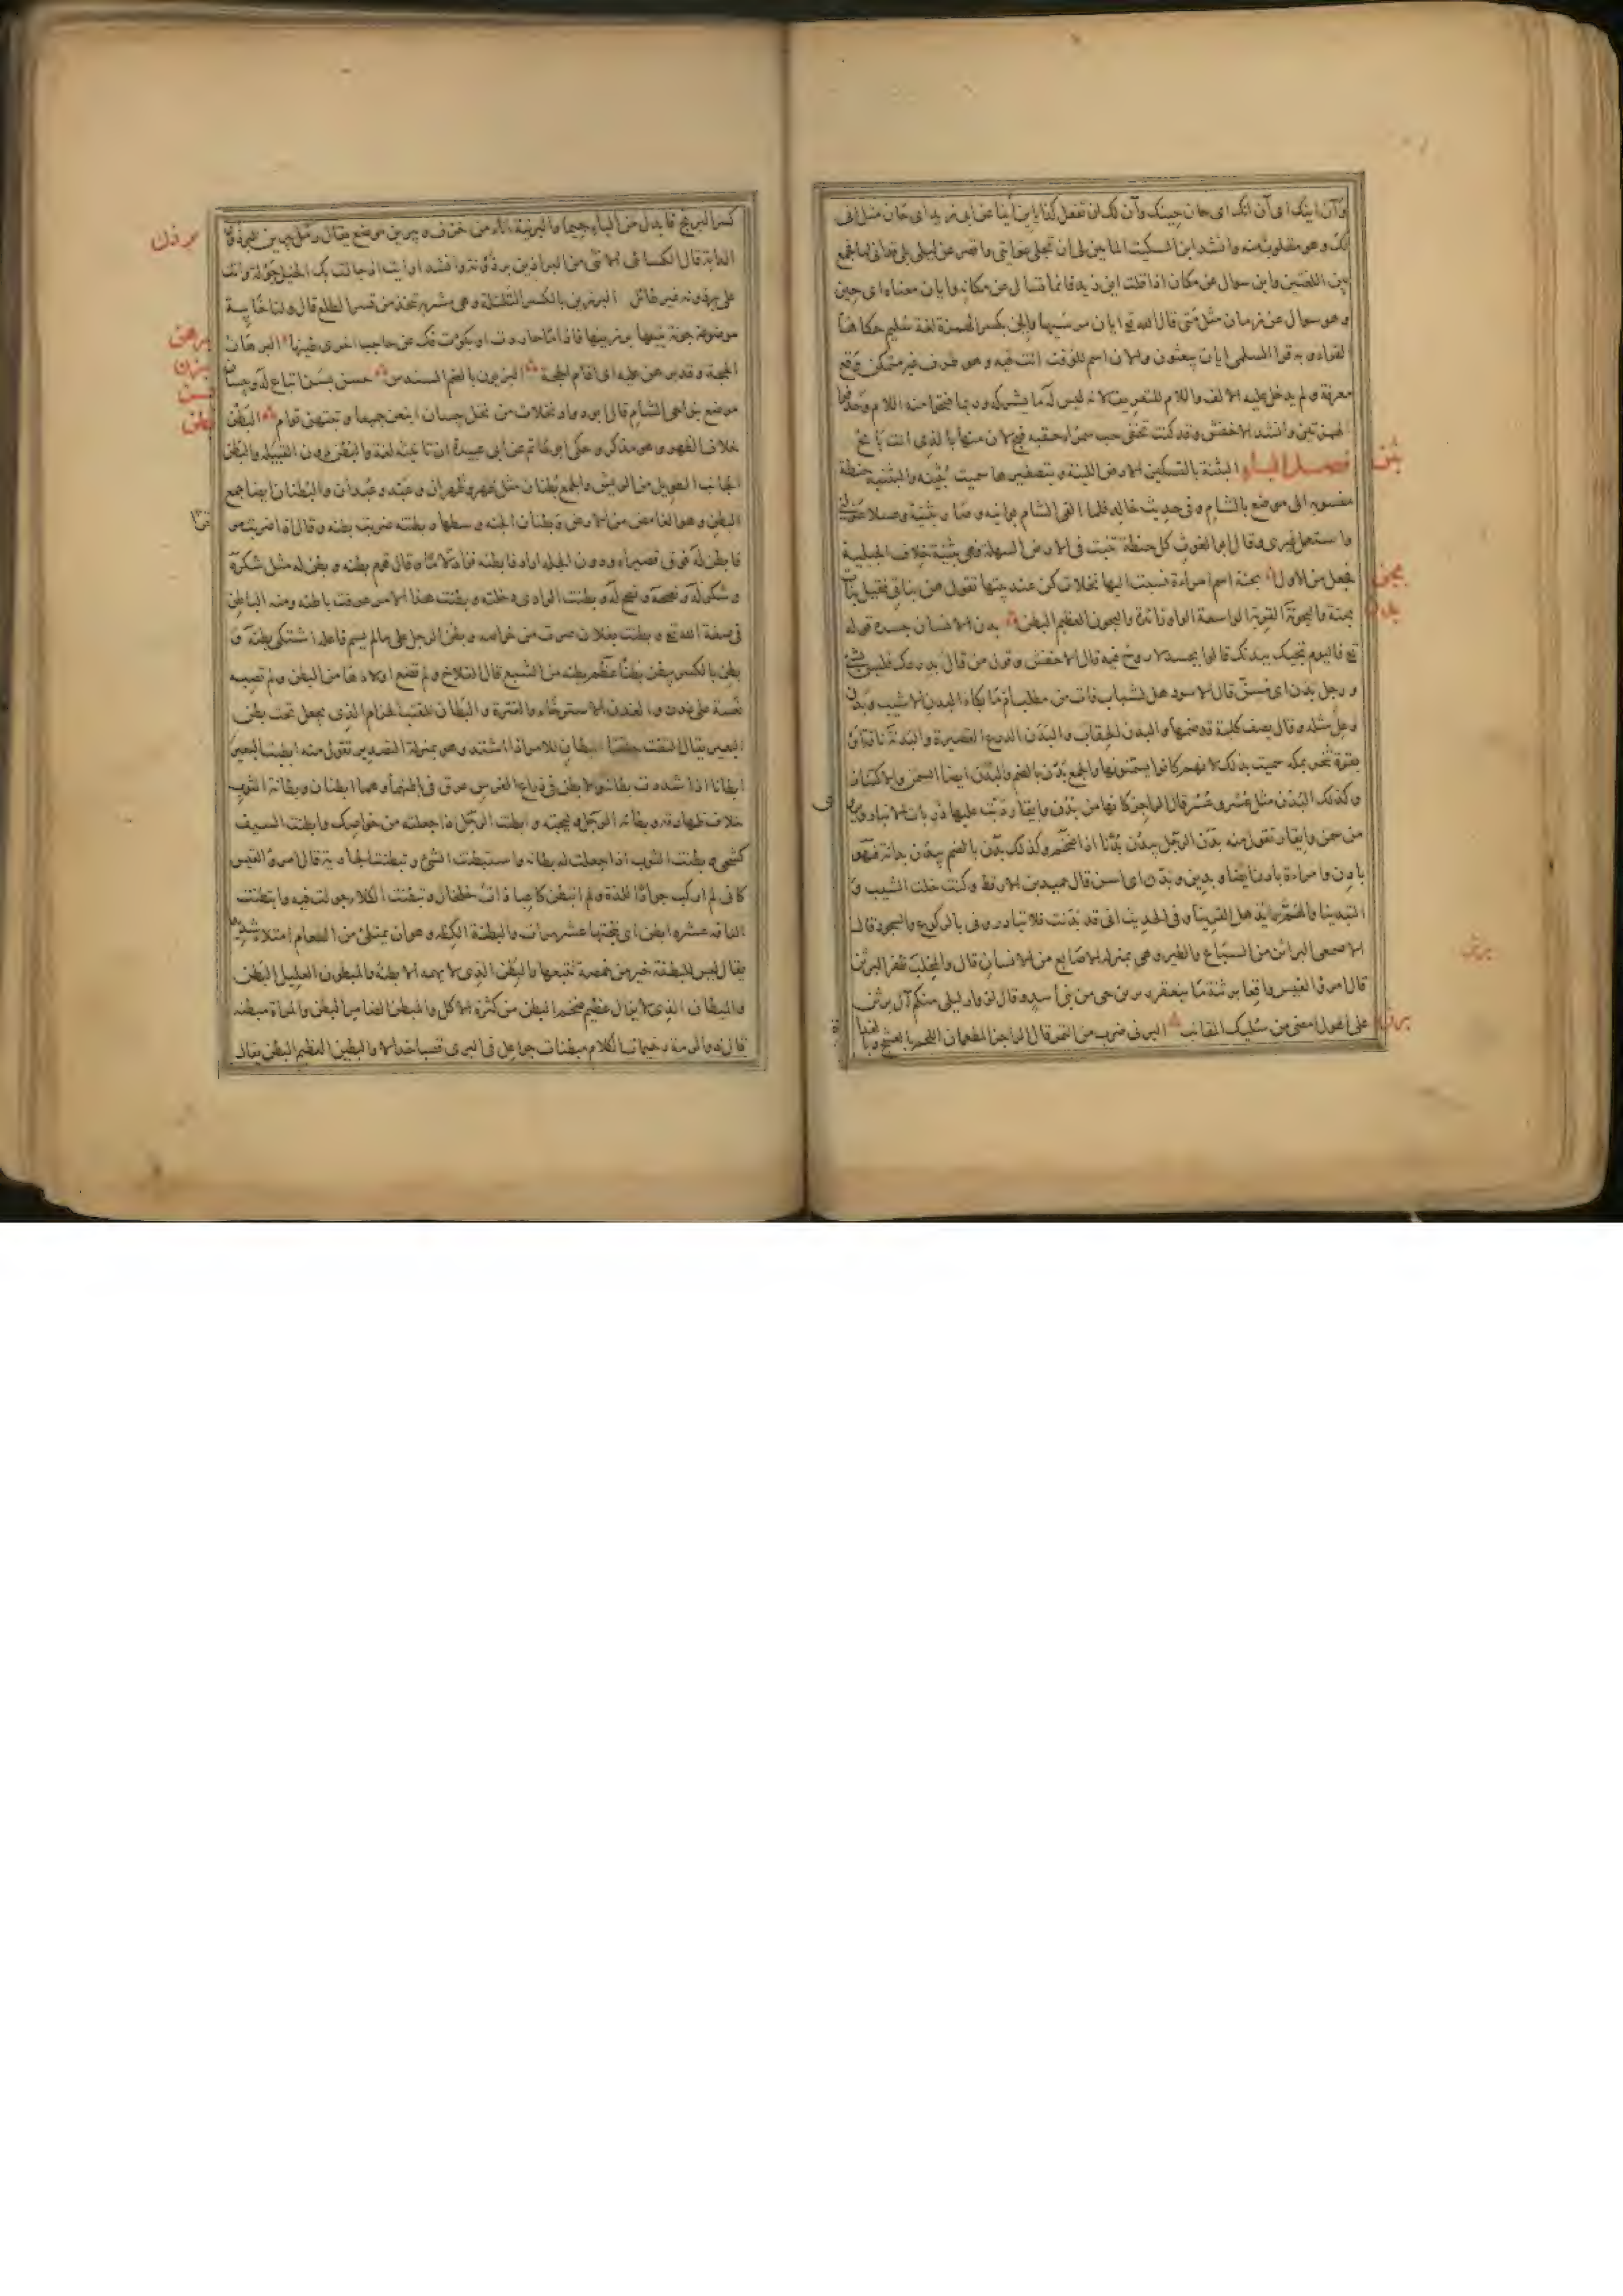 وآن اينك اى آن انك اى حان حينك وآن لك ان تفعل كذا يئين أينا عن ابى زيد اى حان مثل انى
لك وهو مقلوب منه وانشد ابن السكيت الما يئن لى ان تجلى عمايتى واقصر عن ليلى بلى قد انى ليا فجمع
بين اللغتين واين سوال عن مكان اذا قلت اين زيد فانما تسال عن مكانه وايان معناه اى حين
وهو سوال عن زمان مثل متى قال الله تع ايان مرسيها وايان بكسر الهمزة لغة سليم حكاها
الفراء وبه قرا السلمى ايان يبعثون والان اسم للوقت الذى انت فيه وهو ظرف غير متمكن وقع
معرفة ولم يدخل عليه الالف واللام للتعريف لانه ليس له ما يشركه وربما فتحوا منه اللام وحذفوا
الهمزتين وانشد الاخفش وقد كنت تخفى حب سمراء حقبه فبح لان منها بالذى انت بائح
بثن
فصل الباء البثنة بالتسكين الارض اللينة وبتصغيرها سميت بثينة والبثنية حنطة
منسوبة الى موضع بالشام وفى حديث خالد فلما القى الشام بوانيه وصار بثنية وعسلا عزلنى
واستعمل غيرى وقال ابو الغوث كل حنطة تنبت فى الارض السهلة فهى بثنية خلاف الجبلية
بحن
فجعل من الاول بحنة اسم امراءة نسبت اليها نخلات كن عند بيتها تقول هن بناتى فقيل بنات
بدن
بحنة والبحونة القربة الواسعة الواو زائدة والبحون العظيم البطن بدن الانسان جسده قوله
تع فاليوم ننجيك ببدنك قالوا بجسد لا روح فيه قال الاخفش وقول من قال بدرعك فليس بشئ
ورجل بدن اى مسن قال الاسود هل لشباب فات من مطلب ام ما بكاء البدن الاشيب وبدن
وعل مثله وقال يصف كلبة قد ضمها والبدن الحقاب والبدن الدرع القصيرة والبدنة ناقة او
بقرة تنحر بمكه سميت بذلك لانهم كانوا يسمنونها والجمع بدن بالضم والبدن ايضا السمن والاكتناز
وكذلك البدن مثل عسر وعسر قال الراجز كانها من بدن وايفار دبت عليها ذربات الانبار
من سمن وايفار تقول منه بدن الرجل يبدن بدنا اذا ضخم وكذلك بدن بالضم يبدن بدانة فهو
بادن وامراءة بادن ايضا وبدين وبدن اى اسن قال حميد بن الارقط وكنت خلت الشيب و
التبدينا والهم مما يذهل القرينا وفى الحديث انى قد بدنت فلا تبادرونى بالركوع والسجود قال
برثن
الاصمعى البراثن من السباع والطير وهى بمنزلة الاصابع من الانسان قال والمخلب ظفر البرثن
قال امرؤ القيس رافعا برثنه ما ينعفر وبرثن حى من بنى اسد وقال لزوار ليلى منكم آل برثن
برن
على الهول امضى من سليك المقانب البرنى ضرب من التمر قال الراجز المطعمان اللحم بالعشج وبالغداة
كسر البرنج فابدل من الياء جيما والبرنية اناء من خزف ويبرين موضع يقال رمل يبرين
برذن
الدابة قال الكسائى الانثى من البراذين برذونة وانشد اريت اذ جالت بك الخيل جولة وانت
على برذونة غير طائل البرزين بالكسر التلتلة وهى مشربة تتخذ من قشر الطلع قال ولنا خابية
برهن
موضونة جونة يتبعها برزينها فاذا ما حاردت او بكؤت فك عن حاجب اخرى طينها البرهان
بزن
الحجة وقد برهن عليه اى اقام الحجة البزيون بالضم السندس حسن بسن اتباع له وبيسان
بسن
موضع بنواحى الشام قال ابو دواد نخلات من نخل بيسان اينعن جميعا ونبتهن توام البطن
بطن
خلاف الظهر وهو مذكر وحكى ابو حاتم عن ابى عبيدة ان تانيثه لغة والبطن دون القبيلة والبطن
الجانب الطويل من الريش والجمع بطنان مثل ظهر وظهران وعبد وعبدان والبطنان ايضا جمع
البطن وهو الغامض من الارض وبطنان الجنة وسطها وبطنته ضربت بطنه وقال اذا ضربت موقرا
فابطن له فوق قصيراه ودون الجله اراد فابطنه فزاد لاما وقال قوم بطنه وبطن له مثل شكره
وشكر له ونصحه ونصح له وبطنت الوادى دخلته وبطنت هذا الامر عرفت باطنه ومنه الباطن
فى صفة الله تع وبطنت بفلان صرت من خواصه وبطن الرجل على ما لم يسم فاعله اشتكى بطنه و
بطن بالكسر يبطن بطنا عظم بطنه من الشبع قال القلاخ ولم تضع اولادها من البطن ولم تصبه
نعسة على غدن والغدن الاسترخاء والفترة والبطان للقتب الحزام الذى يجعل تحت بطن
البعير يقال التقت حلقتا البطان للامر اذا اشتد وهو بمنزلة التصدير تقول منه ابطنت البعير
ابطانا اذا شددت بطانه والابطن فى ذراع الفرس عرق فى باطنها وهما ابطنان وبطانة الثوب
خلاف ظهارته وبطانة الرجل وليجته وابطنت الرجل اذا جعلته من خواصك وابطنت السيف
كشحى وبطنت الثوب اذا جعلت له بطانة واستبطنت الشئ وتبطنت الجارية قال امرؤ القيس
كانى لم اركب جوادا للذة ولم اتبطن كاعبا ذات خلخال وتبطنت الكلاء جولت فيه وابتطنت
الناقة عشرة ابطن اى نتجتها عشر مرات والبطنة الكظة وهو ان يمتلئ من الطعام امتلاء شديدا
يقال ليس للبطنة خير من خمصة تتبعها والبطن الذى لا يهمه الا بطنه والمبطون العليل البطن
والمبطان الذى لا يزال عظيم ضخم البطن من كثرة الاكل والمبطن الضامر البطن والمراة مبطنة
قال ذو الرمة رخيمات الكلام مبطنات جواعل فى البرى قصبا خدالا والبطين العظيم البطن يقال